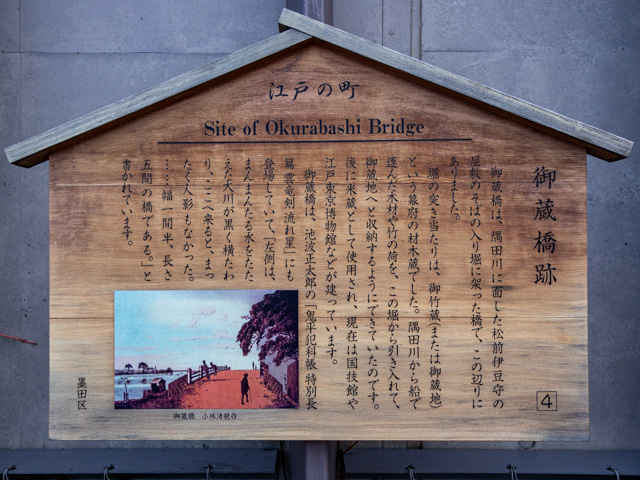 江戸の町
Site of Okurabashi Bridge
御蔵橋跡
御蔵橋は、隅田川に面した松前伊豆守の
屋敷のそばの入り堀に架った橋で、この辺りに
ありました。
堀の突き当たりは、御竹蔵(または御蔵地)
という幕府の材木蔵でした。隅田川から船で
運んだ木材や竹の荷を、この堀から引き入れて、
御蔵地へと収納するようにできていたのです。
後に米蔵として使用され、現在は国技館や
江戸東京博物館などが建っています。
御蔵橋は、池波正太郎の「鬼平犯科帳 特別長
篇 雲竜剣 流れ星」にも
登場していて、「左側は、
まんまんたる水をたた
えた大川が黒く横たわ
り、ここへ来ると、まっ
たく人影もなかった。
……幅一間半、長さ
五間の橋である。」と
書かれています。
御蔵橋 小林清親作
墨田区
4